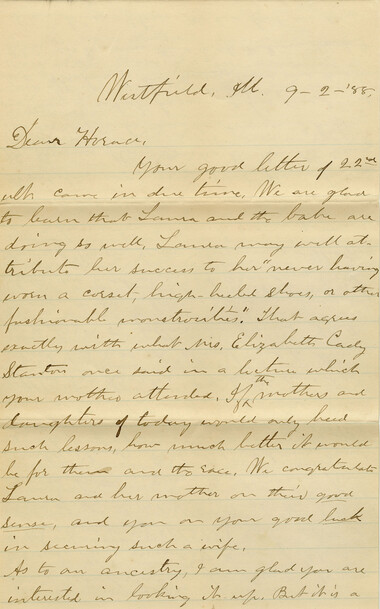 Westfield, Ill. 9-2-'88.
Dear Horace,
Your good letter of 22nd
ult. came in due time. We are glad
to learn that Laura and the babe are
doing so well. Laura may well at-
tribute her success to her "never having
worn a corset, high-heeled shoes, or other
fashionable monstrocities". That agrees
exactly with what Mrs. Elizabeth Cady
Stanton once said in a lecture which
your mother attended. If the mothers and
daughters of today would only heed
such lessons, how much better it would
be for them and the race. We congratulate
Laura and her mother on their good
sense, and you on your good luck
in securing such a wife.
As to our ancestry, I am glad you are
interested in looking it up. But it is a